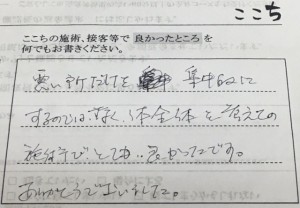 ここち
ここちの施術、接客等で良かったところを
何でもお書きください。
悪い所だけを 集中的に
するのではなく、体全体を考えての
施術で、とても良かったです。
ありがとうございました。